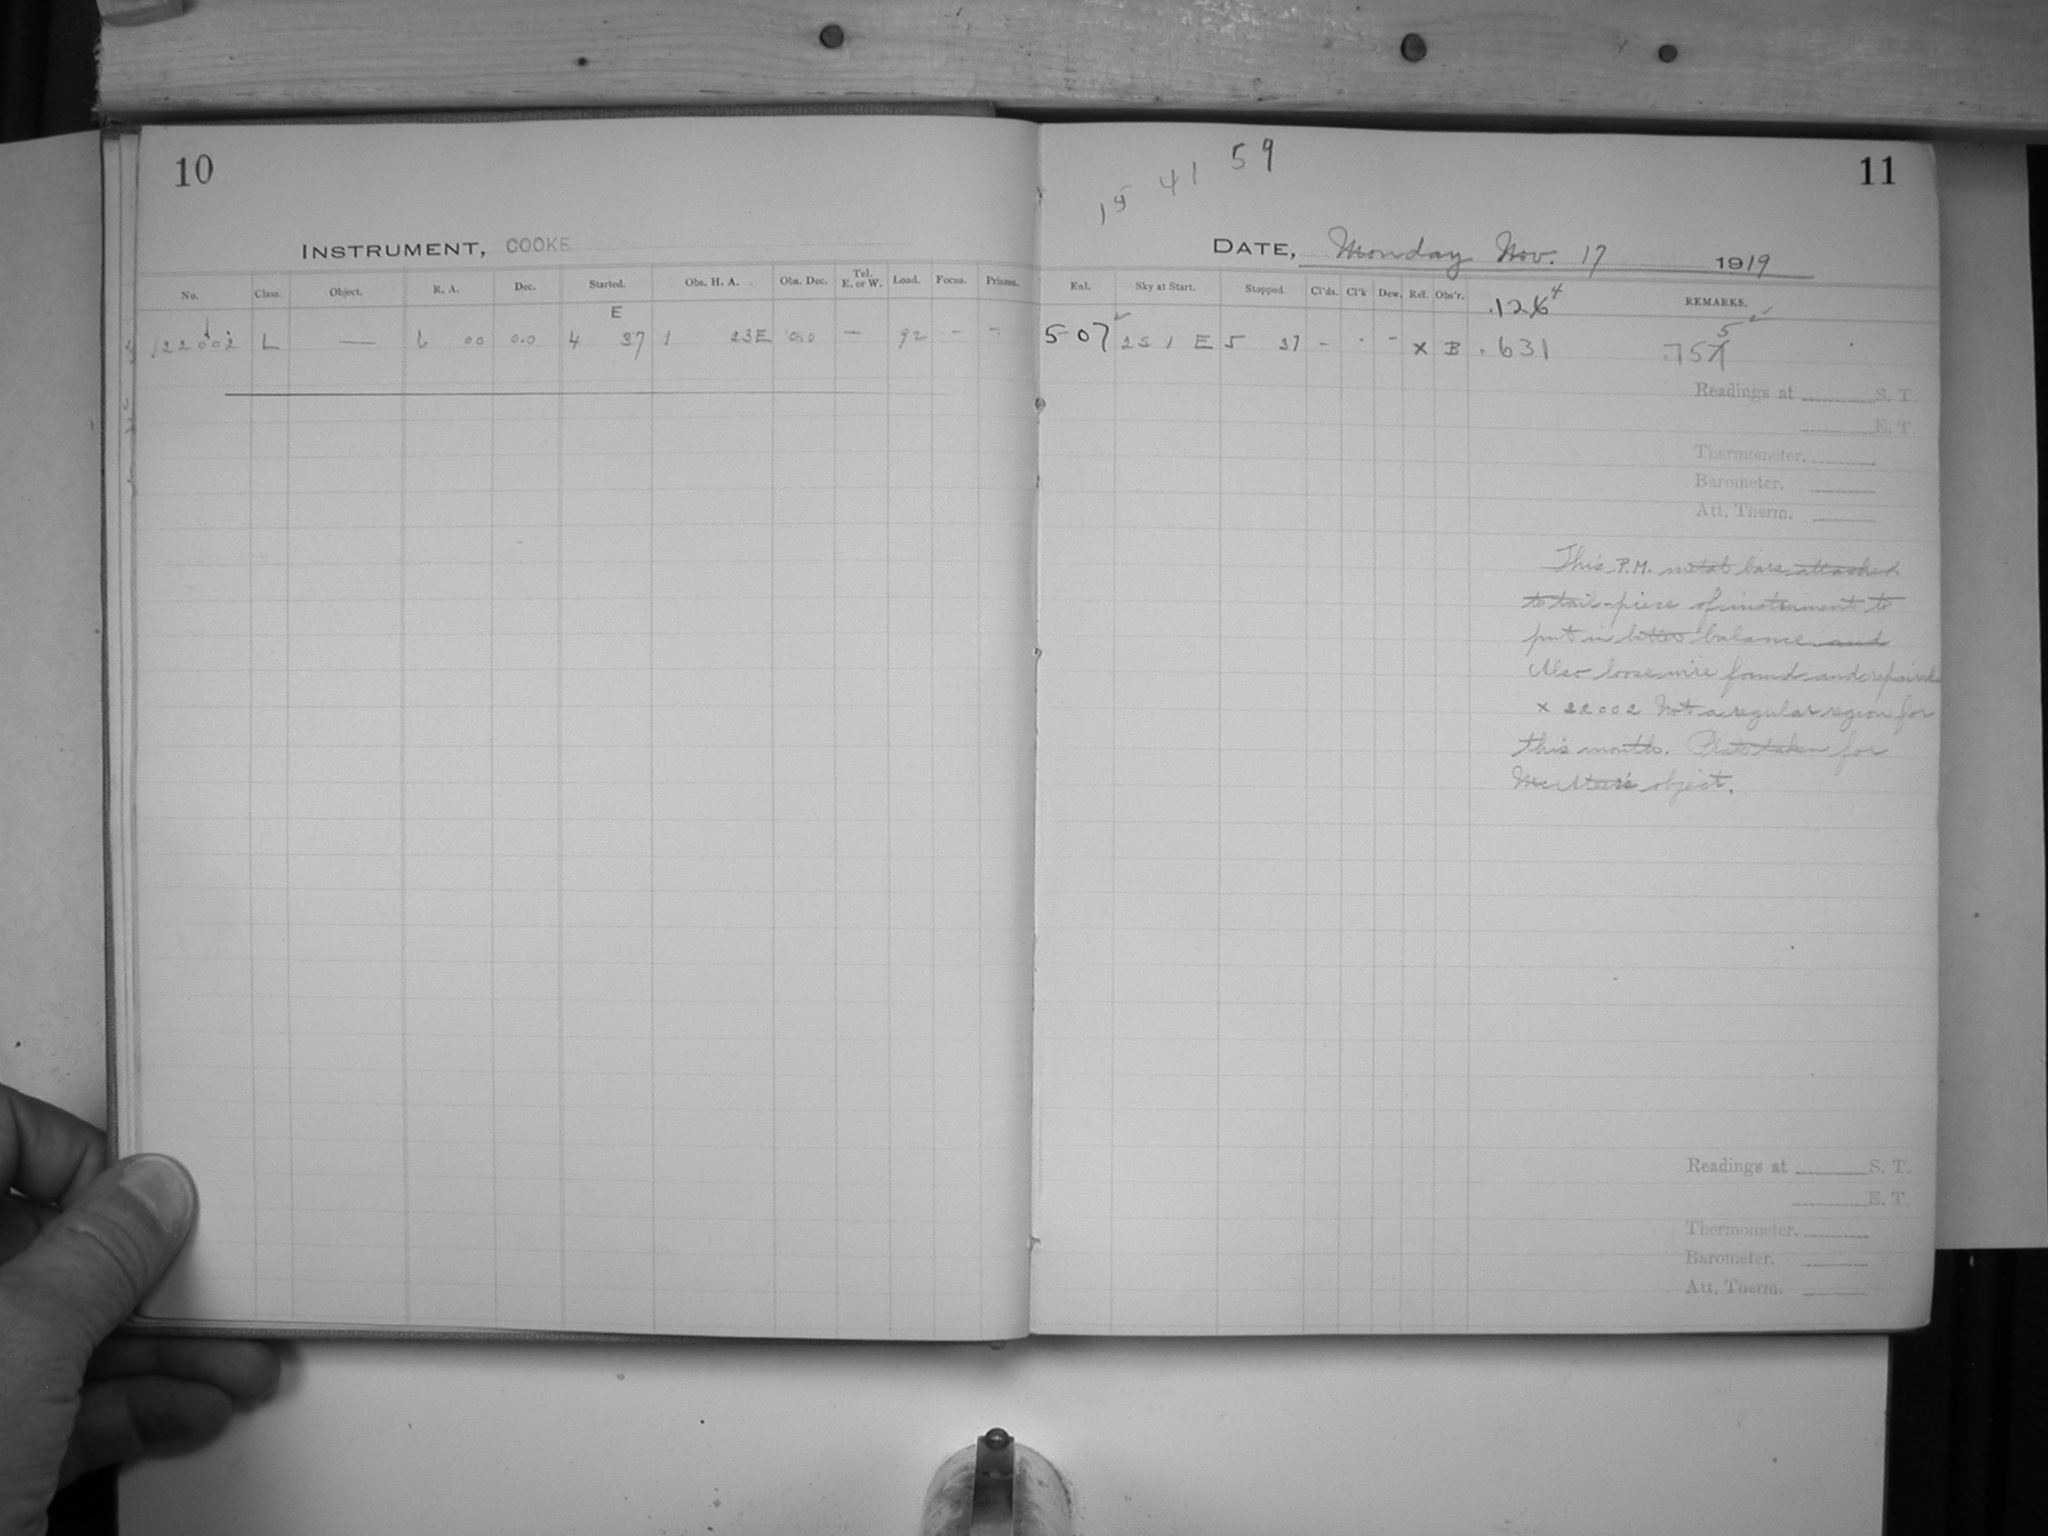 10
INSTRUMENT, COOKE
No. Class. Object. R. A. Dec. Started. Obs. H. A. Obs. Dec. Tel. E. or W. Load. Focus. Prisms.
E
22002 L — 6 00 00 4 37 1 23E 00 — 92 - -
15 41 59
11
DATE, Monday Nov. 17 1919
Exl. Sky at Start. Stopped. Cl'ds. Cl'k Dew. Ref. Obs'r. REMARKS.
.1264
507 2S 1 E 5 37 - - - X B .631 .7575
Readings at S. T.
E. T.
Thermometer.
Barometer.
Att. Therm.
This P.M. metal bars attached
to tail-piece of instrument to
put in better balance and
Also loose wire found and repaired
x 22002 Not a regular region for
this month. Plate taken for
object.
Readings at S. T.
E. T.
Thermometer.
Barometer.
Att. Therm.